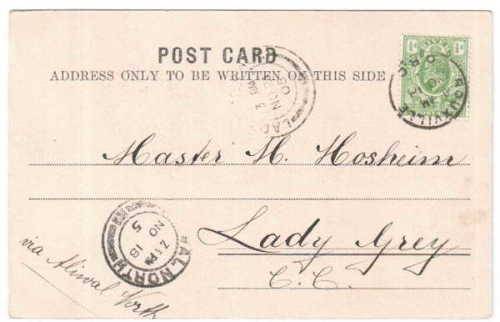 POST CARD
ADDRESS ONLY TO BE WRITTEN ON THIS SIDE
ROUXVILLE
O.R.C.
Master H. Hosheim
Lady Grey
C. C.
via Aliwal North
AL. NORTH
NO 18
5